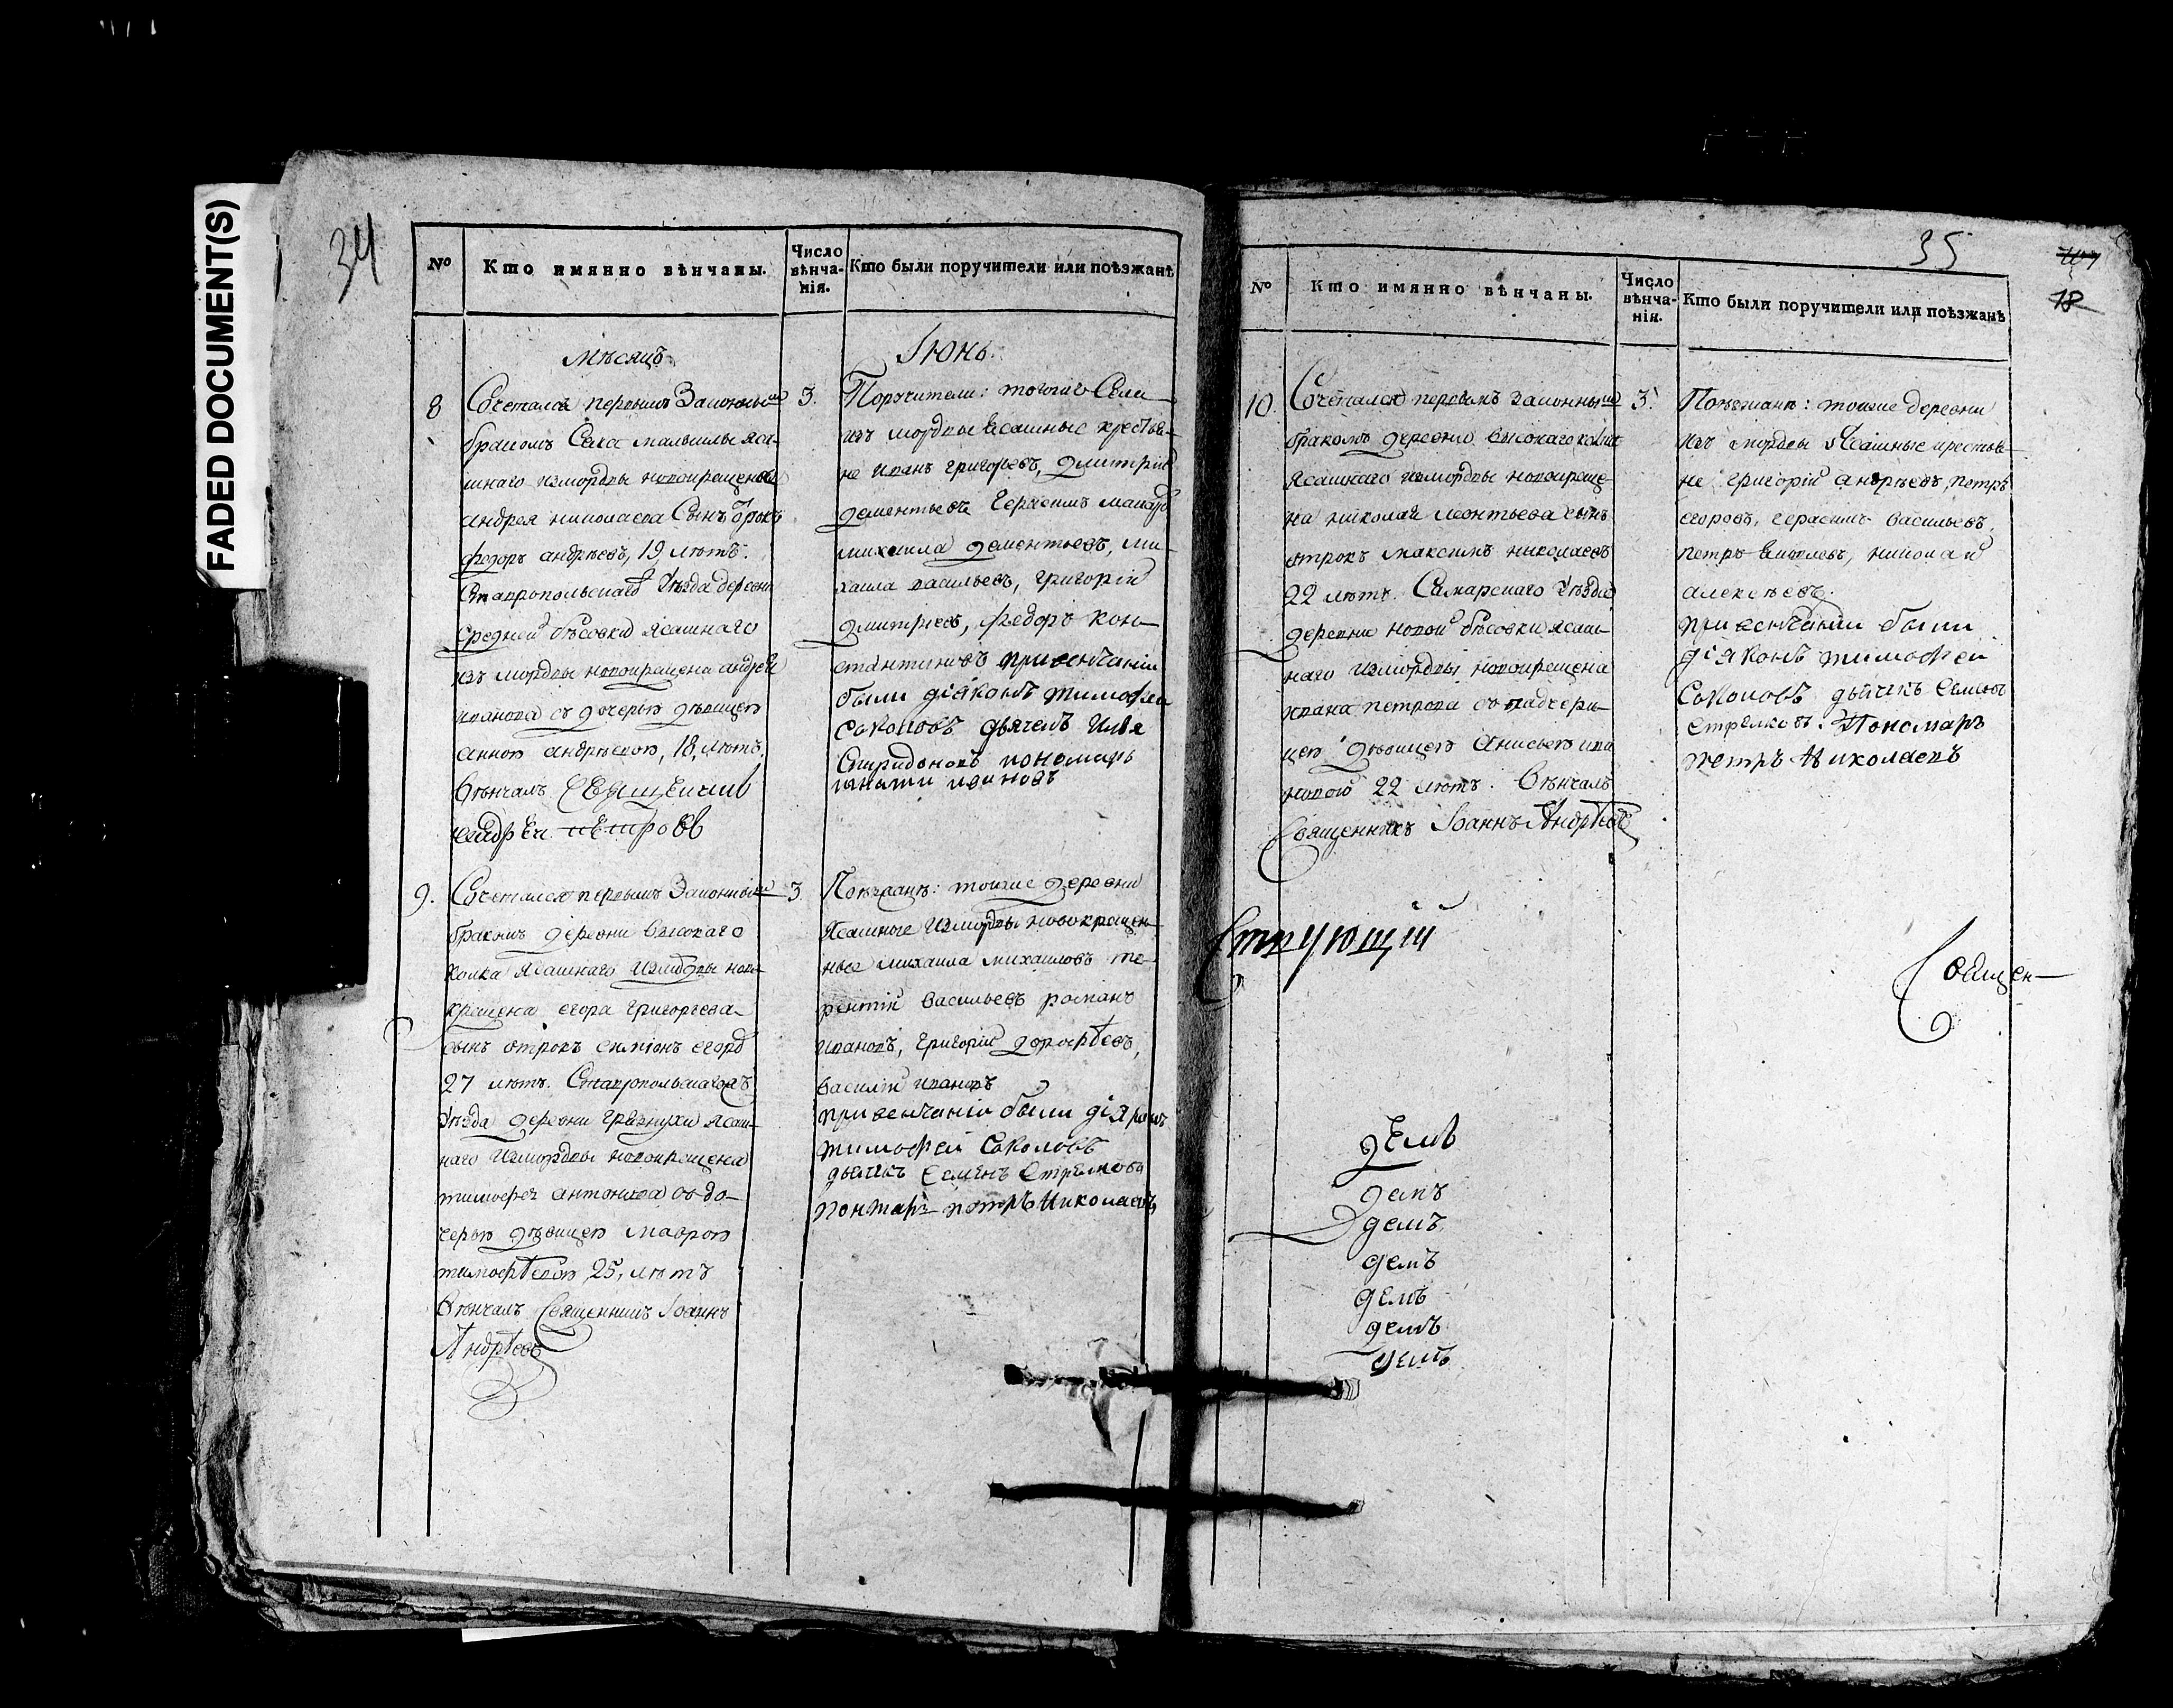 FADED DOCUMENT(S)
34
№
Кто имянно вѣнчаны.
Число вѣнча-нія.
Кто были поручители или поѣзжанѣ
мѣсяцъ
Іюнь
8
Сочетался первымъ Законнымъ
бракомъ Села малышлы яса-
шнаго измордвы новокрещена
андрея николаева Сынъ отрокъ
федоръ андрѣевъ, 19 лѣтъ.
Ставропольскаго Уѣзда деревни
средней бѣсовки ясашнаго
изъ мордвы новокрещена андрея
иванова съ дочерью дѣвицею
анною андрѣевою, 18, лѣтъ.
Вѣнчалъ священникъ
андрѣи петровъ
3.
Поручители: тогожъ Села
изъ мордвы Ясашные крестья-
не иванъ григорьевъ, дмитрій
дементьевъ Герасимъ макар
михаила дементьевъ, ми-
хаила васильевъ, григорій
дмитріевъ, федоръ кон-
стантиновъ при венчаніи
были діяконъ тимофеи
соколовъ дьячекъ илья
Спиридоновъ пономарь
9.
Сочетался первымъ Законнымъ
бракомъ деревни высокаго
колка ясашнаго измордвы ново-
крещена егора григорьева
сынъ отрокъ симіонъ егоръ
27 лѣтъ. Ставропольскагожъ
Уѣзда деревни грязнухи ясаш-
наго измордвы новокрещена
тимофеѧ антонова съ до-
черью дѣвицею маврою
тимофѣевою 25, лѣтъ
Вѣнчалъ Священникъ Іоаннъ
Андрѣевъ
3.
Поѣзжанѣ: тоѧже деревни
ясашные измордвы новокрещен-
ные михаила михаиловъ те-
рентій васильевъ романъ
ивановъ, григорій дорофѣевъ,
василій ивановъ
при венчаніи были діяконъ
тимофей соколовъ
дьячкъ Семенъ Стрелковъ
понмарь петръ николаевъ
35
18
№
Кто имянно вѣнчаны.
Число вѣнча-нія.
Кто были поручители или поѣзжанѣ
10.
Сочетался первымъ законнымъ
бракомъ деревни высокаго колка
ясашнаго измордвы новокреще-
на николая леонтьева сынъ
отрокъ максимъ николаевъ
22 лѣтъ. Самарскаго Уѣзда
деревни новой бѣсовки ясаш-
наго измордвы новокрещена
ивана петрова съ падчери-
цею дѣвицею анисьею ива
новою 22 лѣтъ. Вѣнчалъ
Священникъ Іоаннъ Андрѣевъ
3.
Поѣзжанѣ: тояже деревни
изъ мордвы ясашные крестья-
не григорій андрѣевъ, петръ
егоровъ, герасимъ васильевъ,
николай
алексѣевъ.
при венчании были
діяконъ тимофеи
Соколовъ дьячкъ Семенъ
Стрелковъ. Пономарь
петръ николаевъ
Священ-
демъ
демъ
демъ
демъ
демъ
демъ
демъ